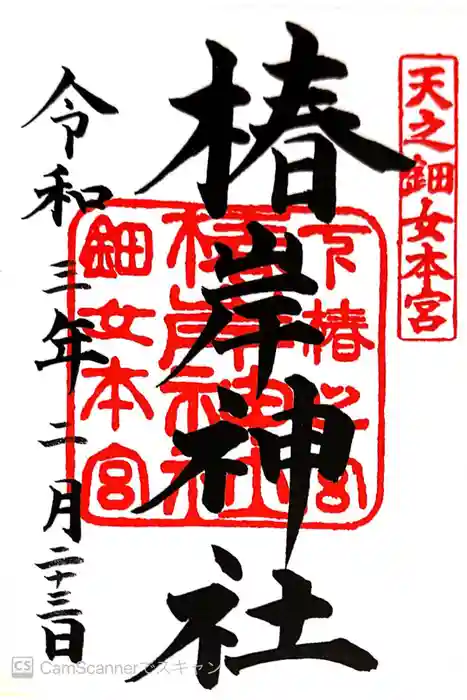 天之鈿女本宮
椿岸神社
下椿之宮
椿岸神社
鈿女本宮
令和三年二月二十三日
CS CamScannerでスキャン